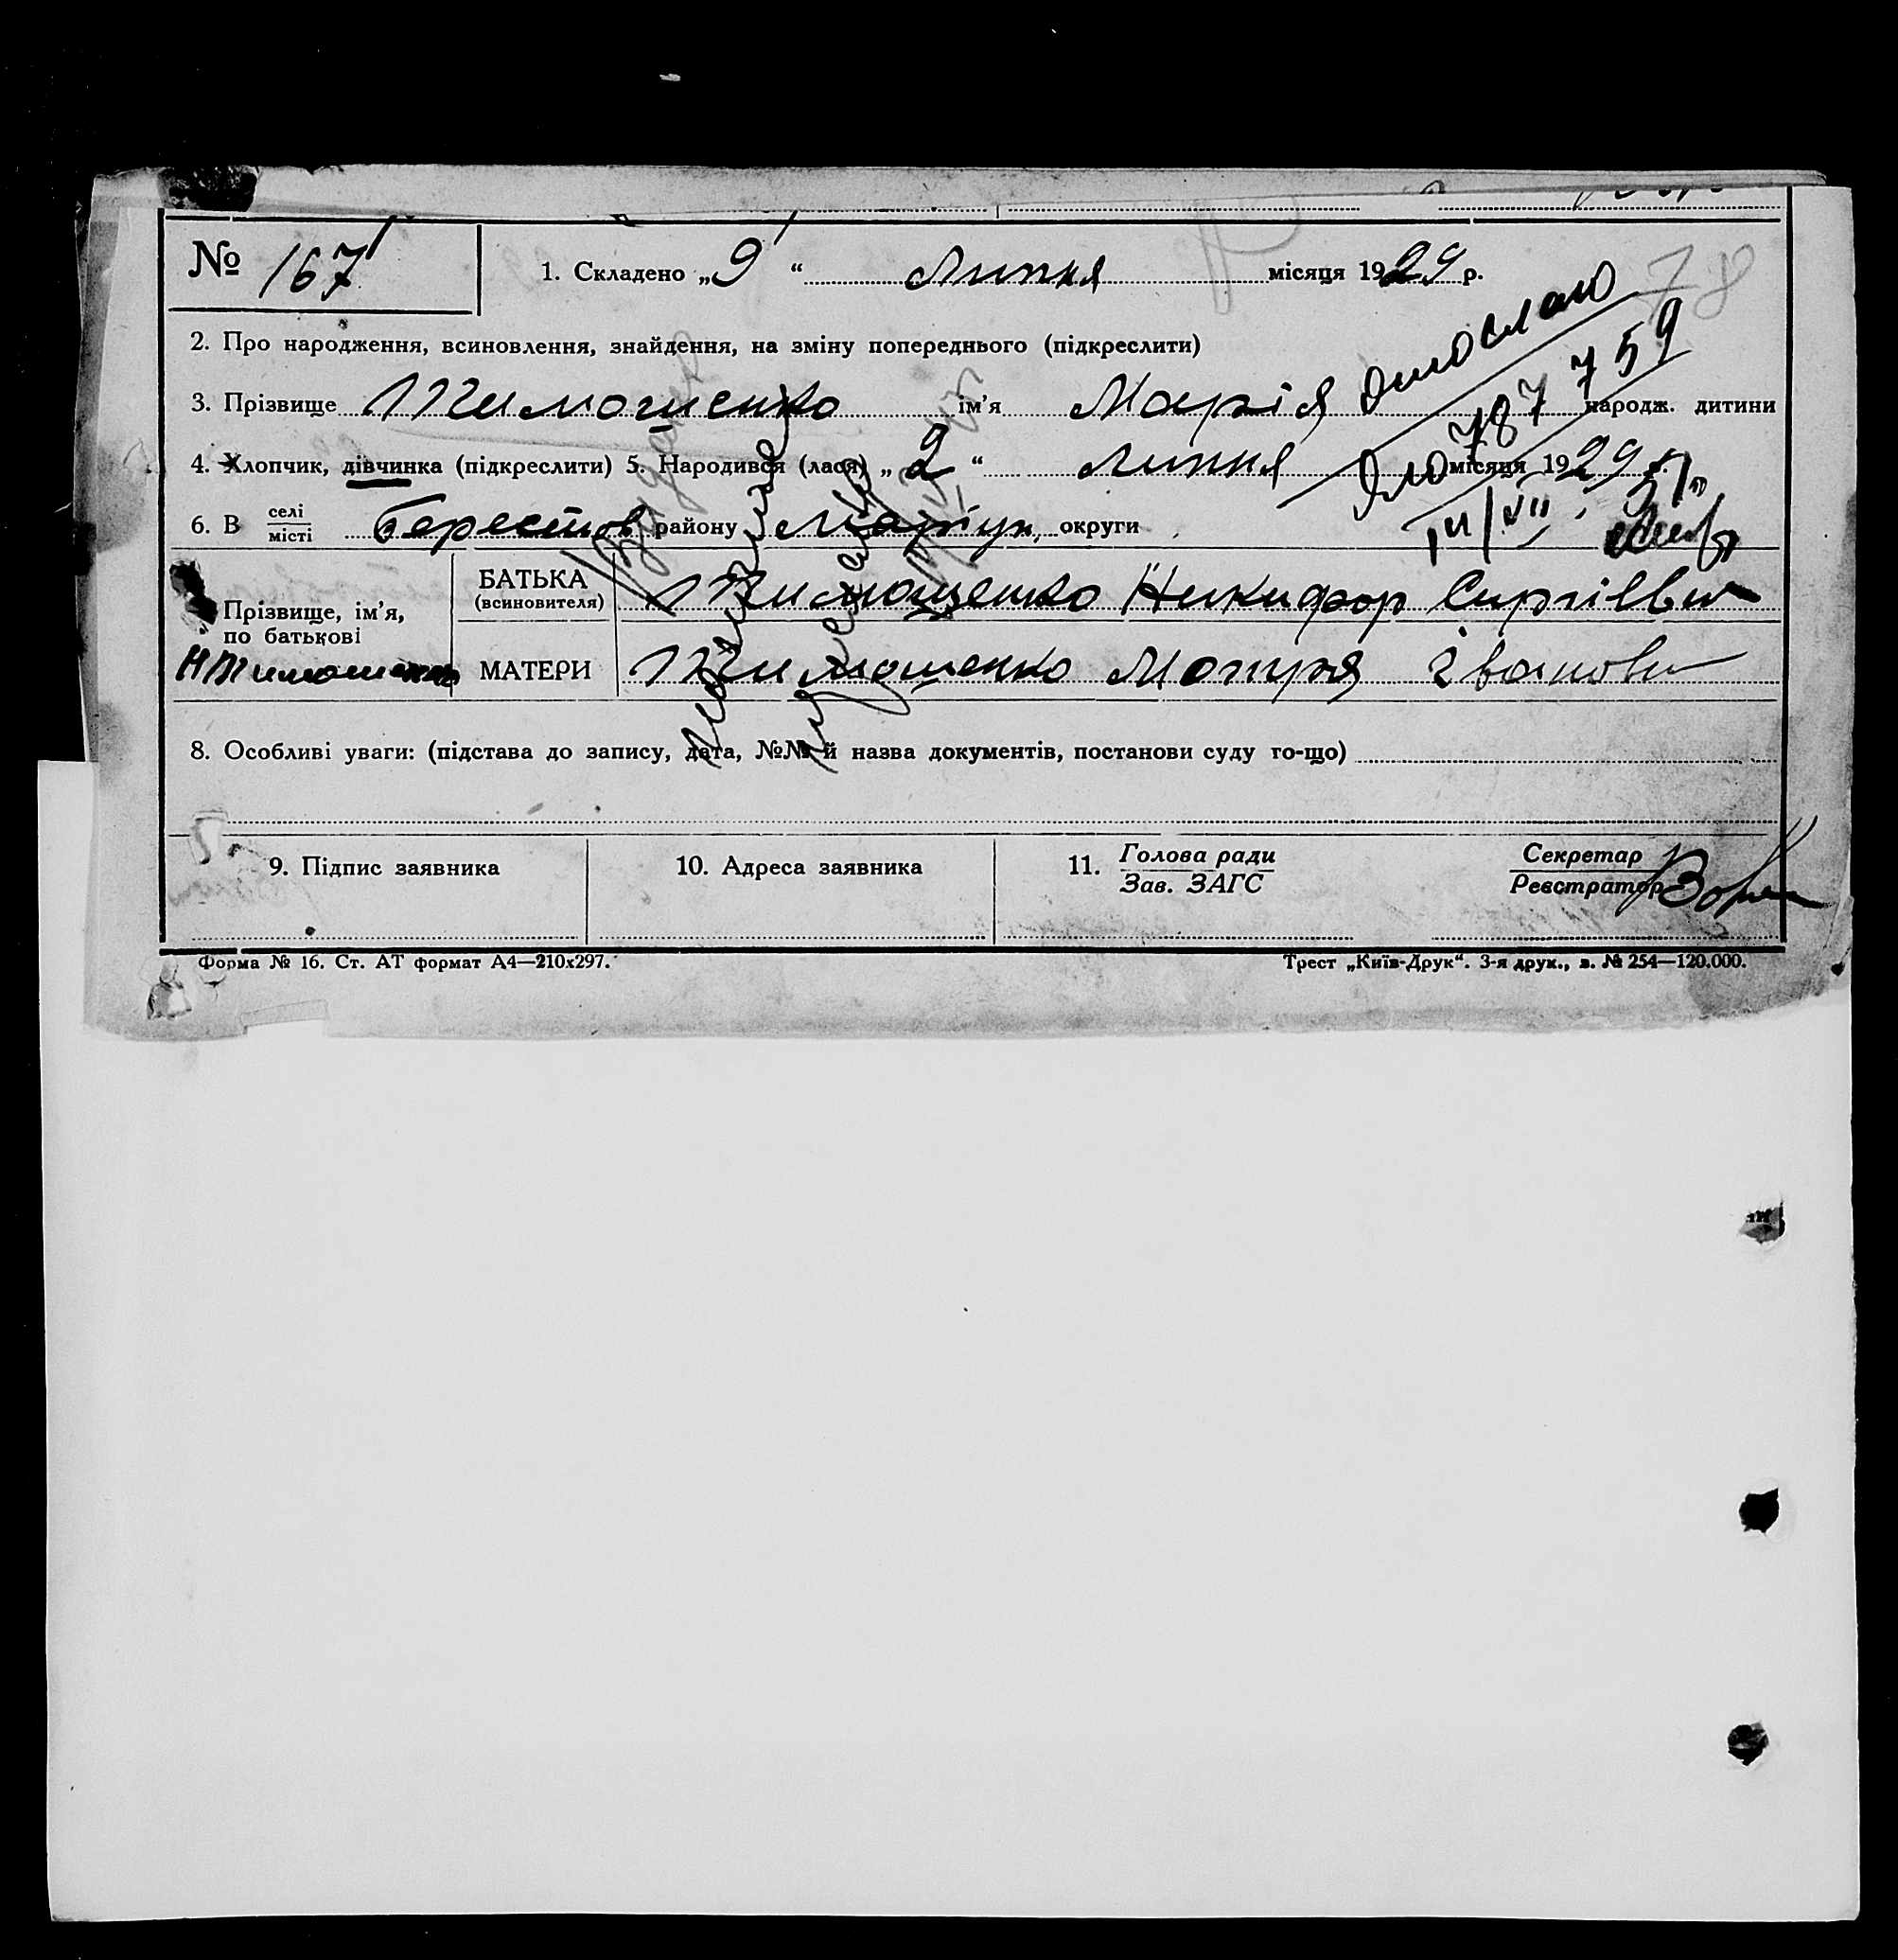 № 167
1. Складено „9“ Липня місяця 1929 р.
78
2. Про народження, всиновлення, знайдення, на зміну попереднього (підкреслити)
3. Прізвище Тимошенко ім’я Марія народж. дитини
787759
4. Хлопчик, дівчинка (підкреслити) 5. Народився (лася) „2“ Липня місяця 1929 р.
6. В селі місті Берестов району Маріуп. округи
Прізвище, ім’я, по батькові
БАТЬКА (всиновителя) Тимошенко Никифор Сиргіїви
НТимошенко
МАТЕРИ Тимошенко Мотря Іванови
8. Особливі уваги: (підстава до запису, дата, №№ й назва документів, постанови суду то-що)
9. Підпис заявника 10. Адреса заявника 11. Голова ради Зав. ЗАГС Секретар Реєстратор
Форма № 16. Ст. АТ формат А4—210х297. Трест „Київ-Друк“. 3-я друк., з. № 254—120.000.